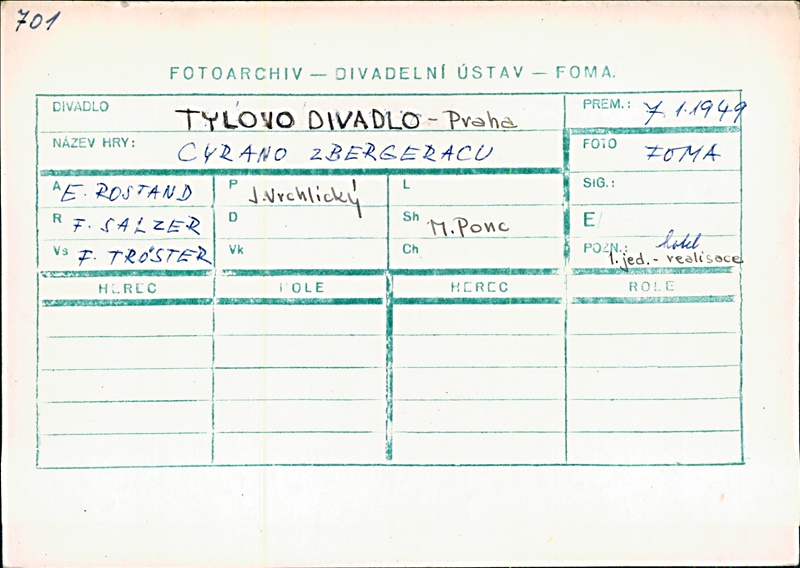 701
FOTOARCHIV — DIVADELNÍ ÚSTAV — FOMA.
DIVADLO TYLOVO DIVADLO - Praha PREM.: 7.1.1949
NÁZEV HRY: CYRANO Z BERGERACU FOTO FOMA
A E. ROSTAND P J. Vrchlický L SIG.:
R F. SALZER D Sh M. Ponc E
Vs F. TRÖSTER Vk Ch POZN.:
1. jed. - realisace
HEREC ROLE HEREC ROLE